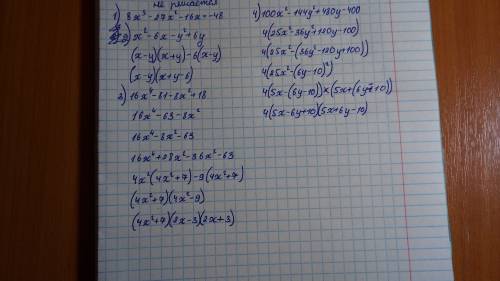 не решается
1) 8x³-27x²-16x=-48
3) x²-6x-y²+6y
(x-y)(x+y)-6(x-y)
(x-y)(x+y-6)
2) 16x⁴-81-8x²+18
16x⁴-63-8x²
16x⁴-8x²-63
16x⁴+28x²-36x²-63
4x²(4x²+7)-9(4x²+7)
(4x²+7)(4x²-9)
(4x²+7)(2x-3)(2x+3)
4) 100x²-144y²+480y-400
4(25x²-36y²+120y-100)
4(25x²-(36y²-120y+100))
4(25x²-(6y-10)²)
4(5x-(6y-10))×(5x+(6y-10))
4(5x-6y+10)(5x+6y-10)